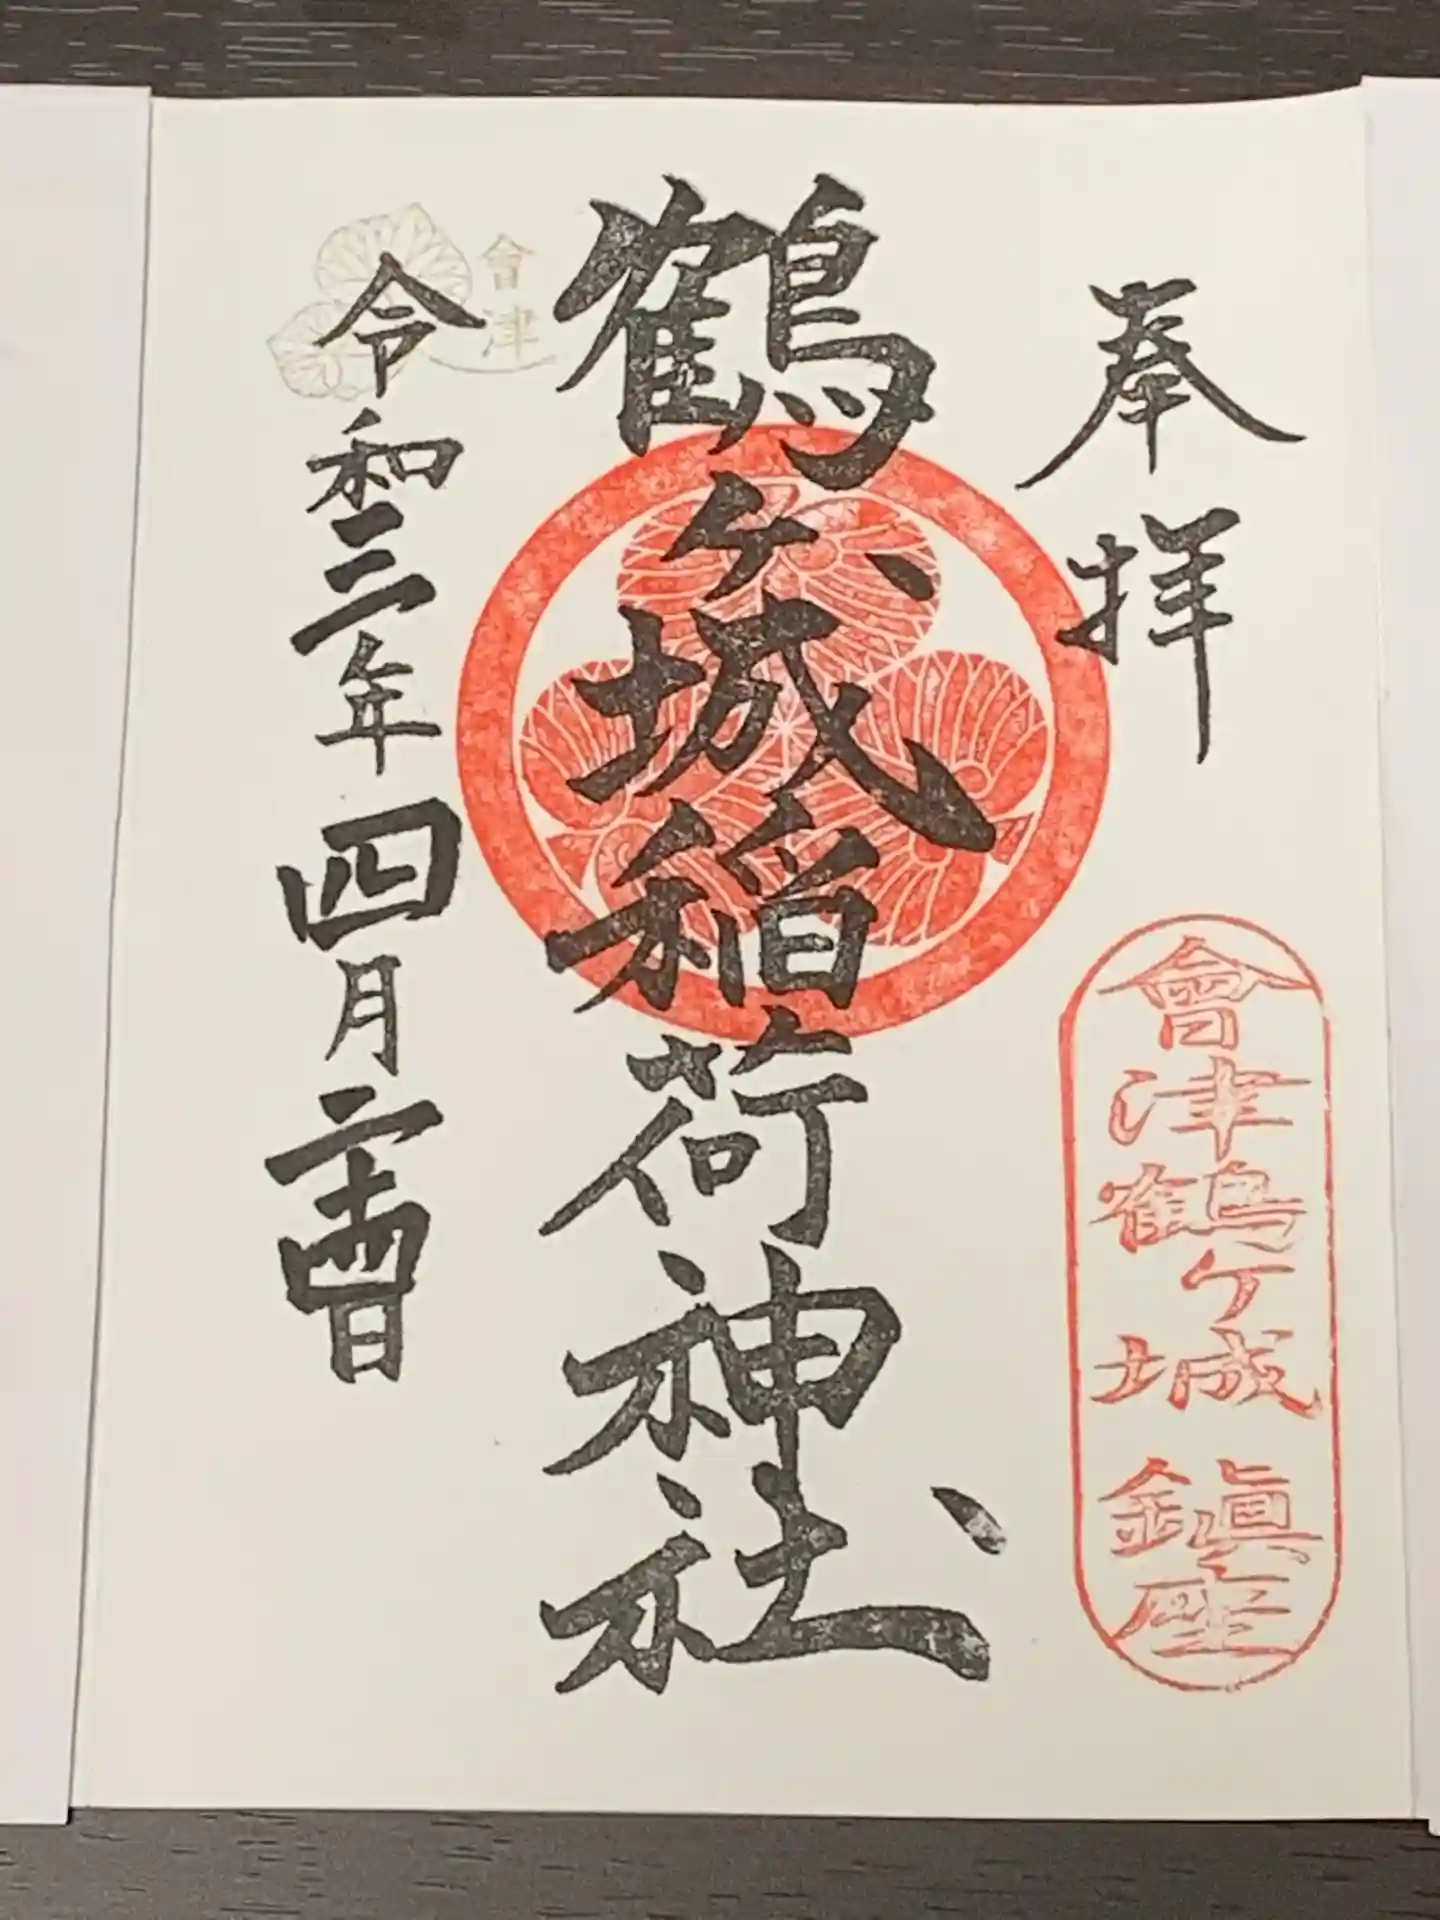 奉拝
會津鶴ヶ城 鎮座
鶴ヶ城稲荷神社
會津
令和三年四月二十四日